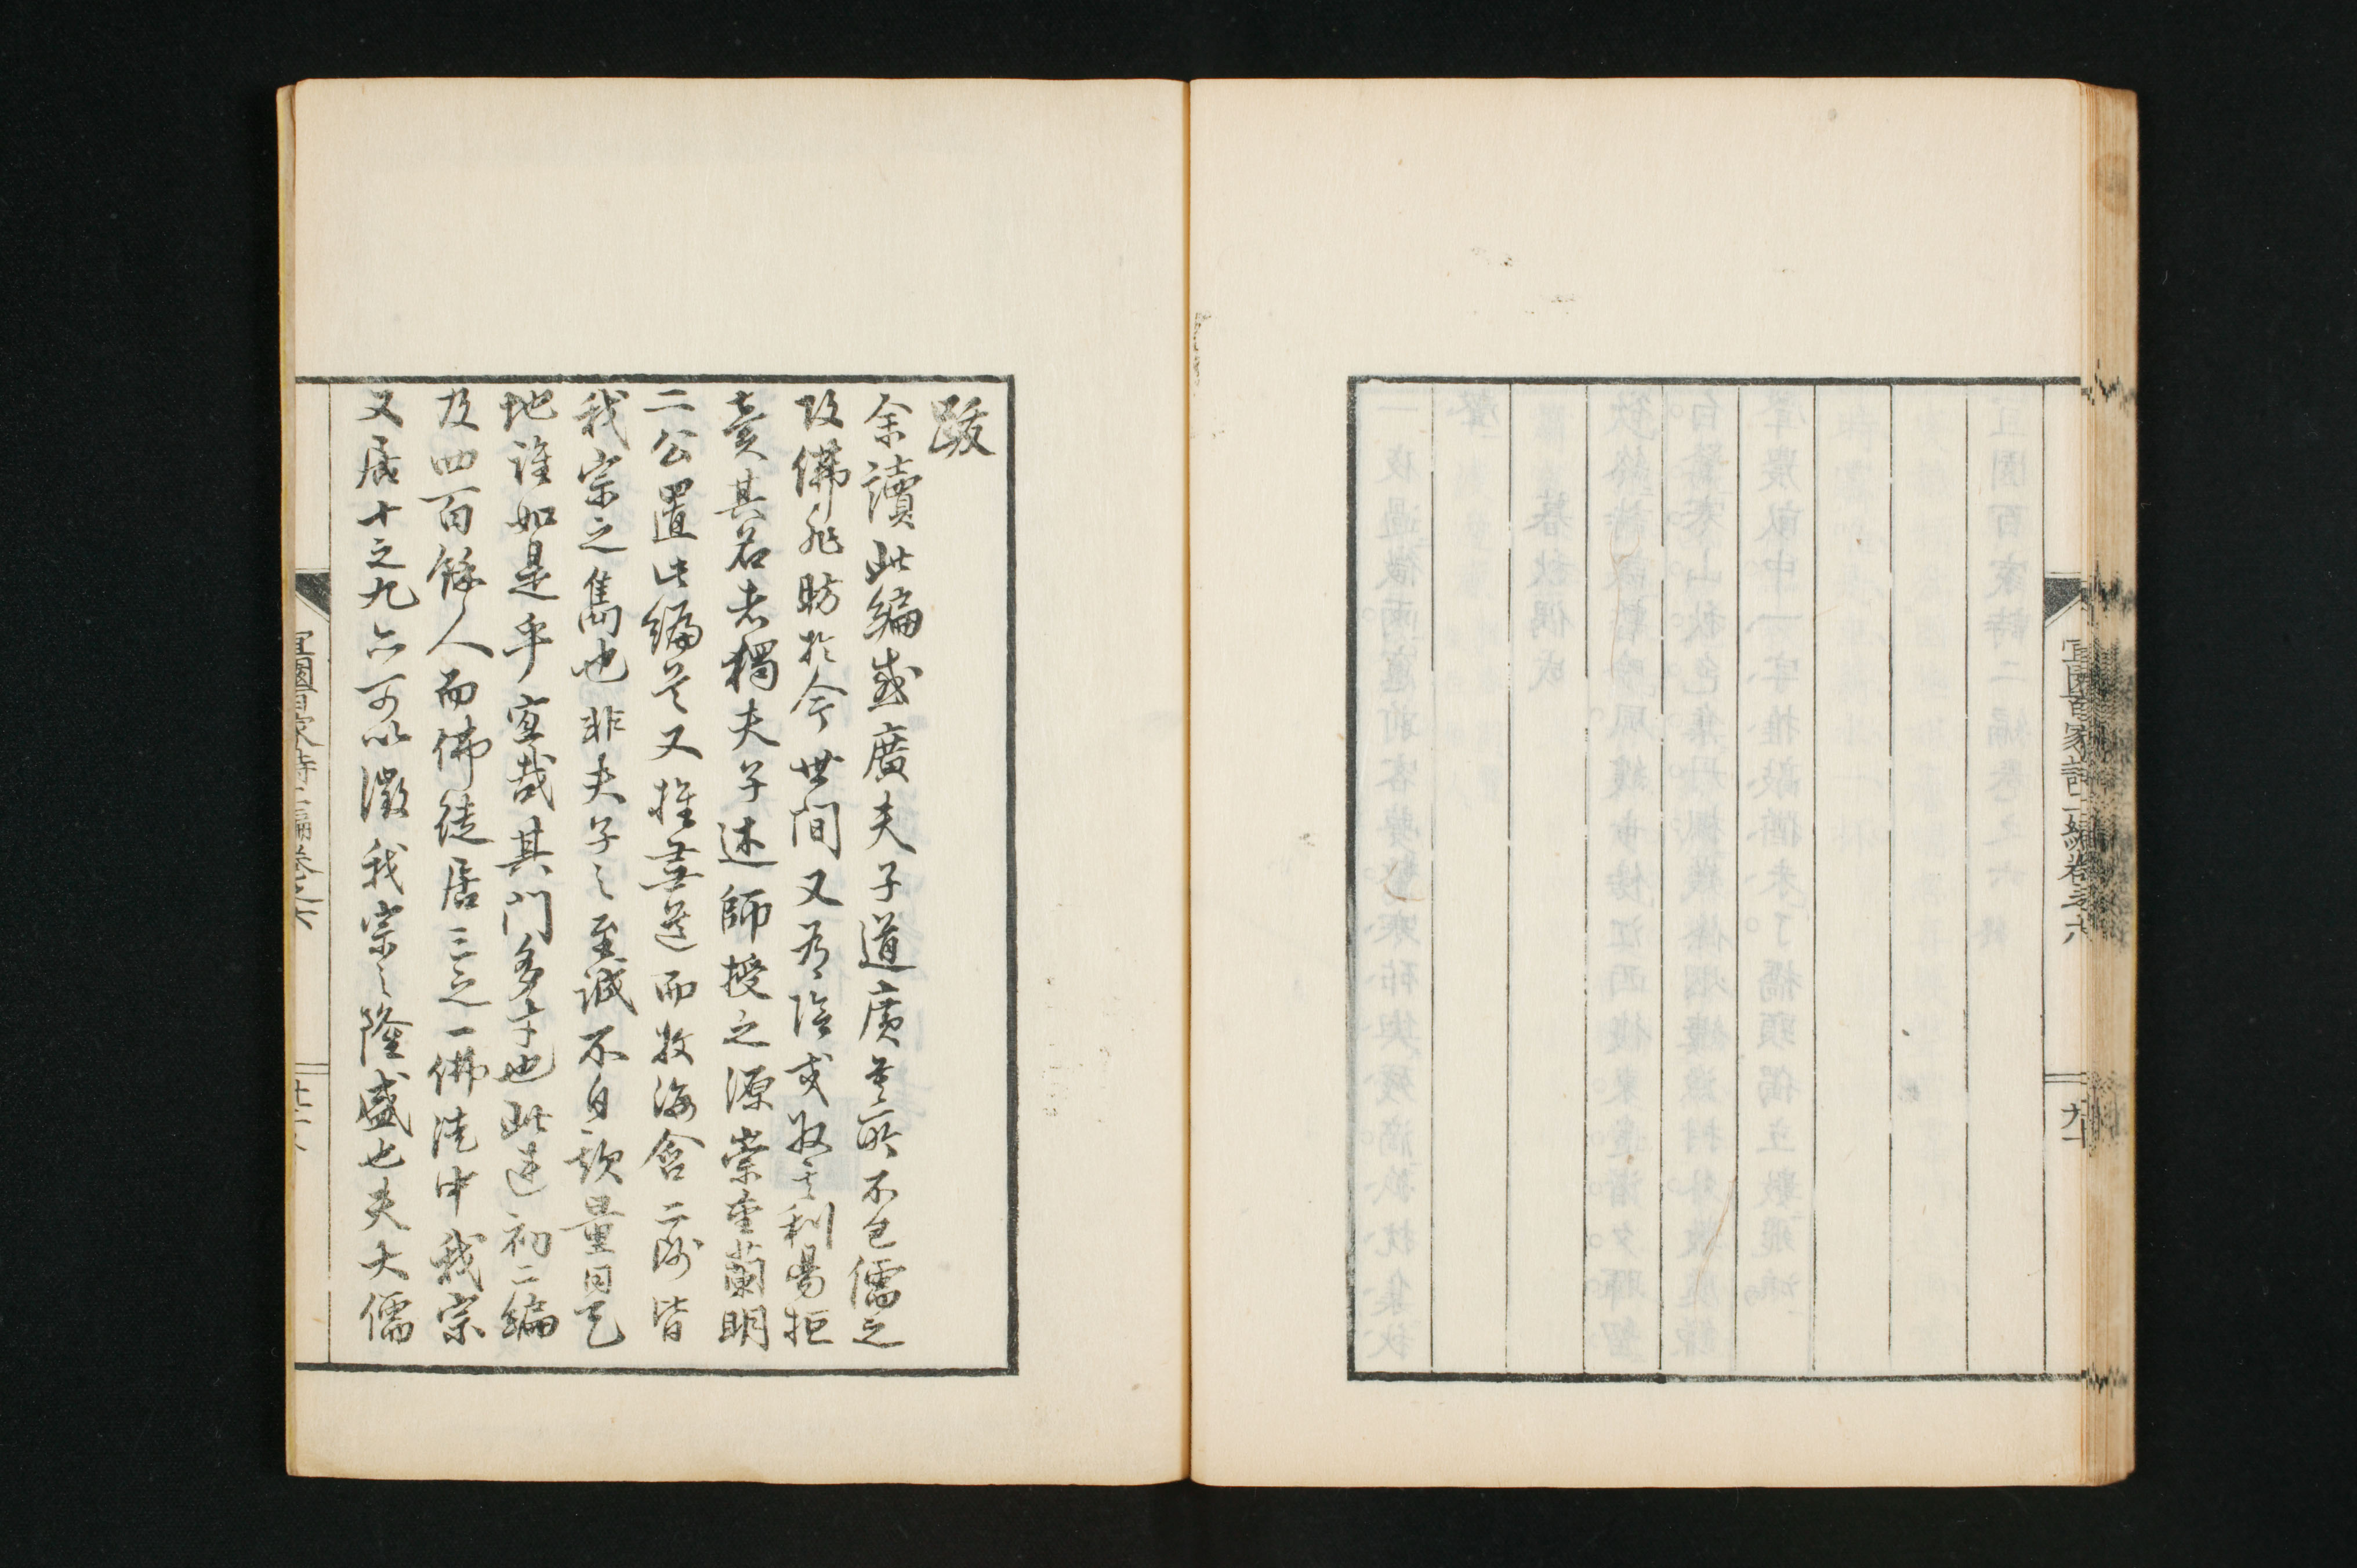 宜園百家詩二編卷之六
跋
余讀此編感廣夫子道廣莫所不包儒之
攻佛非昉於今世間又有陰或取其利陽拒
其名者獨夫子述師授之源崇重蘭明
二公置此編首又推無逆而牧海含二衲皆
我宗之雋也非夫子之至誠不自欺量同天
地誰如是乎宜哉其門多才也此連初二編
及四百餘人而佛徒居三之一佛徒中我宗
又居十之九亦可以徵我宗之隆盛也夫大儒
宜園百家詩二編卷之六